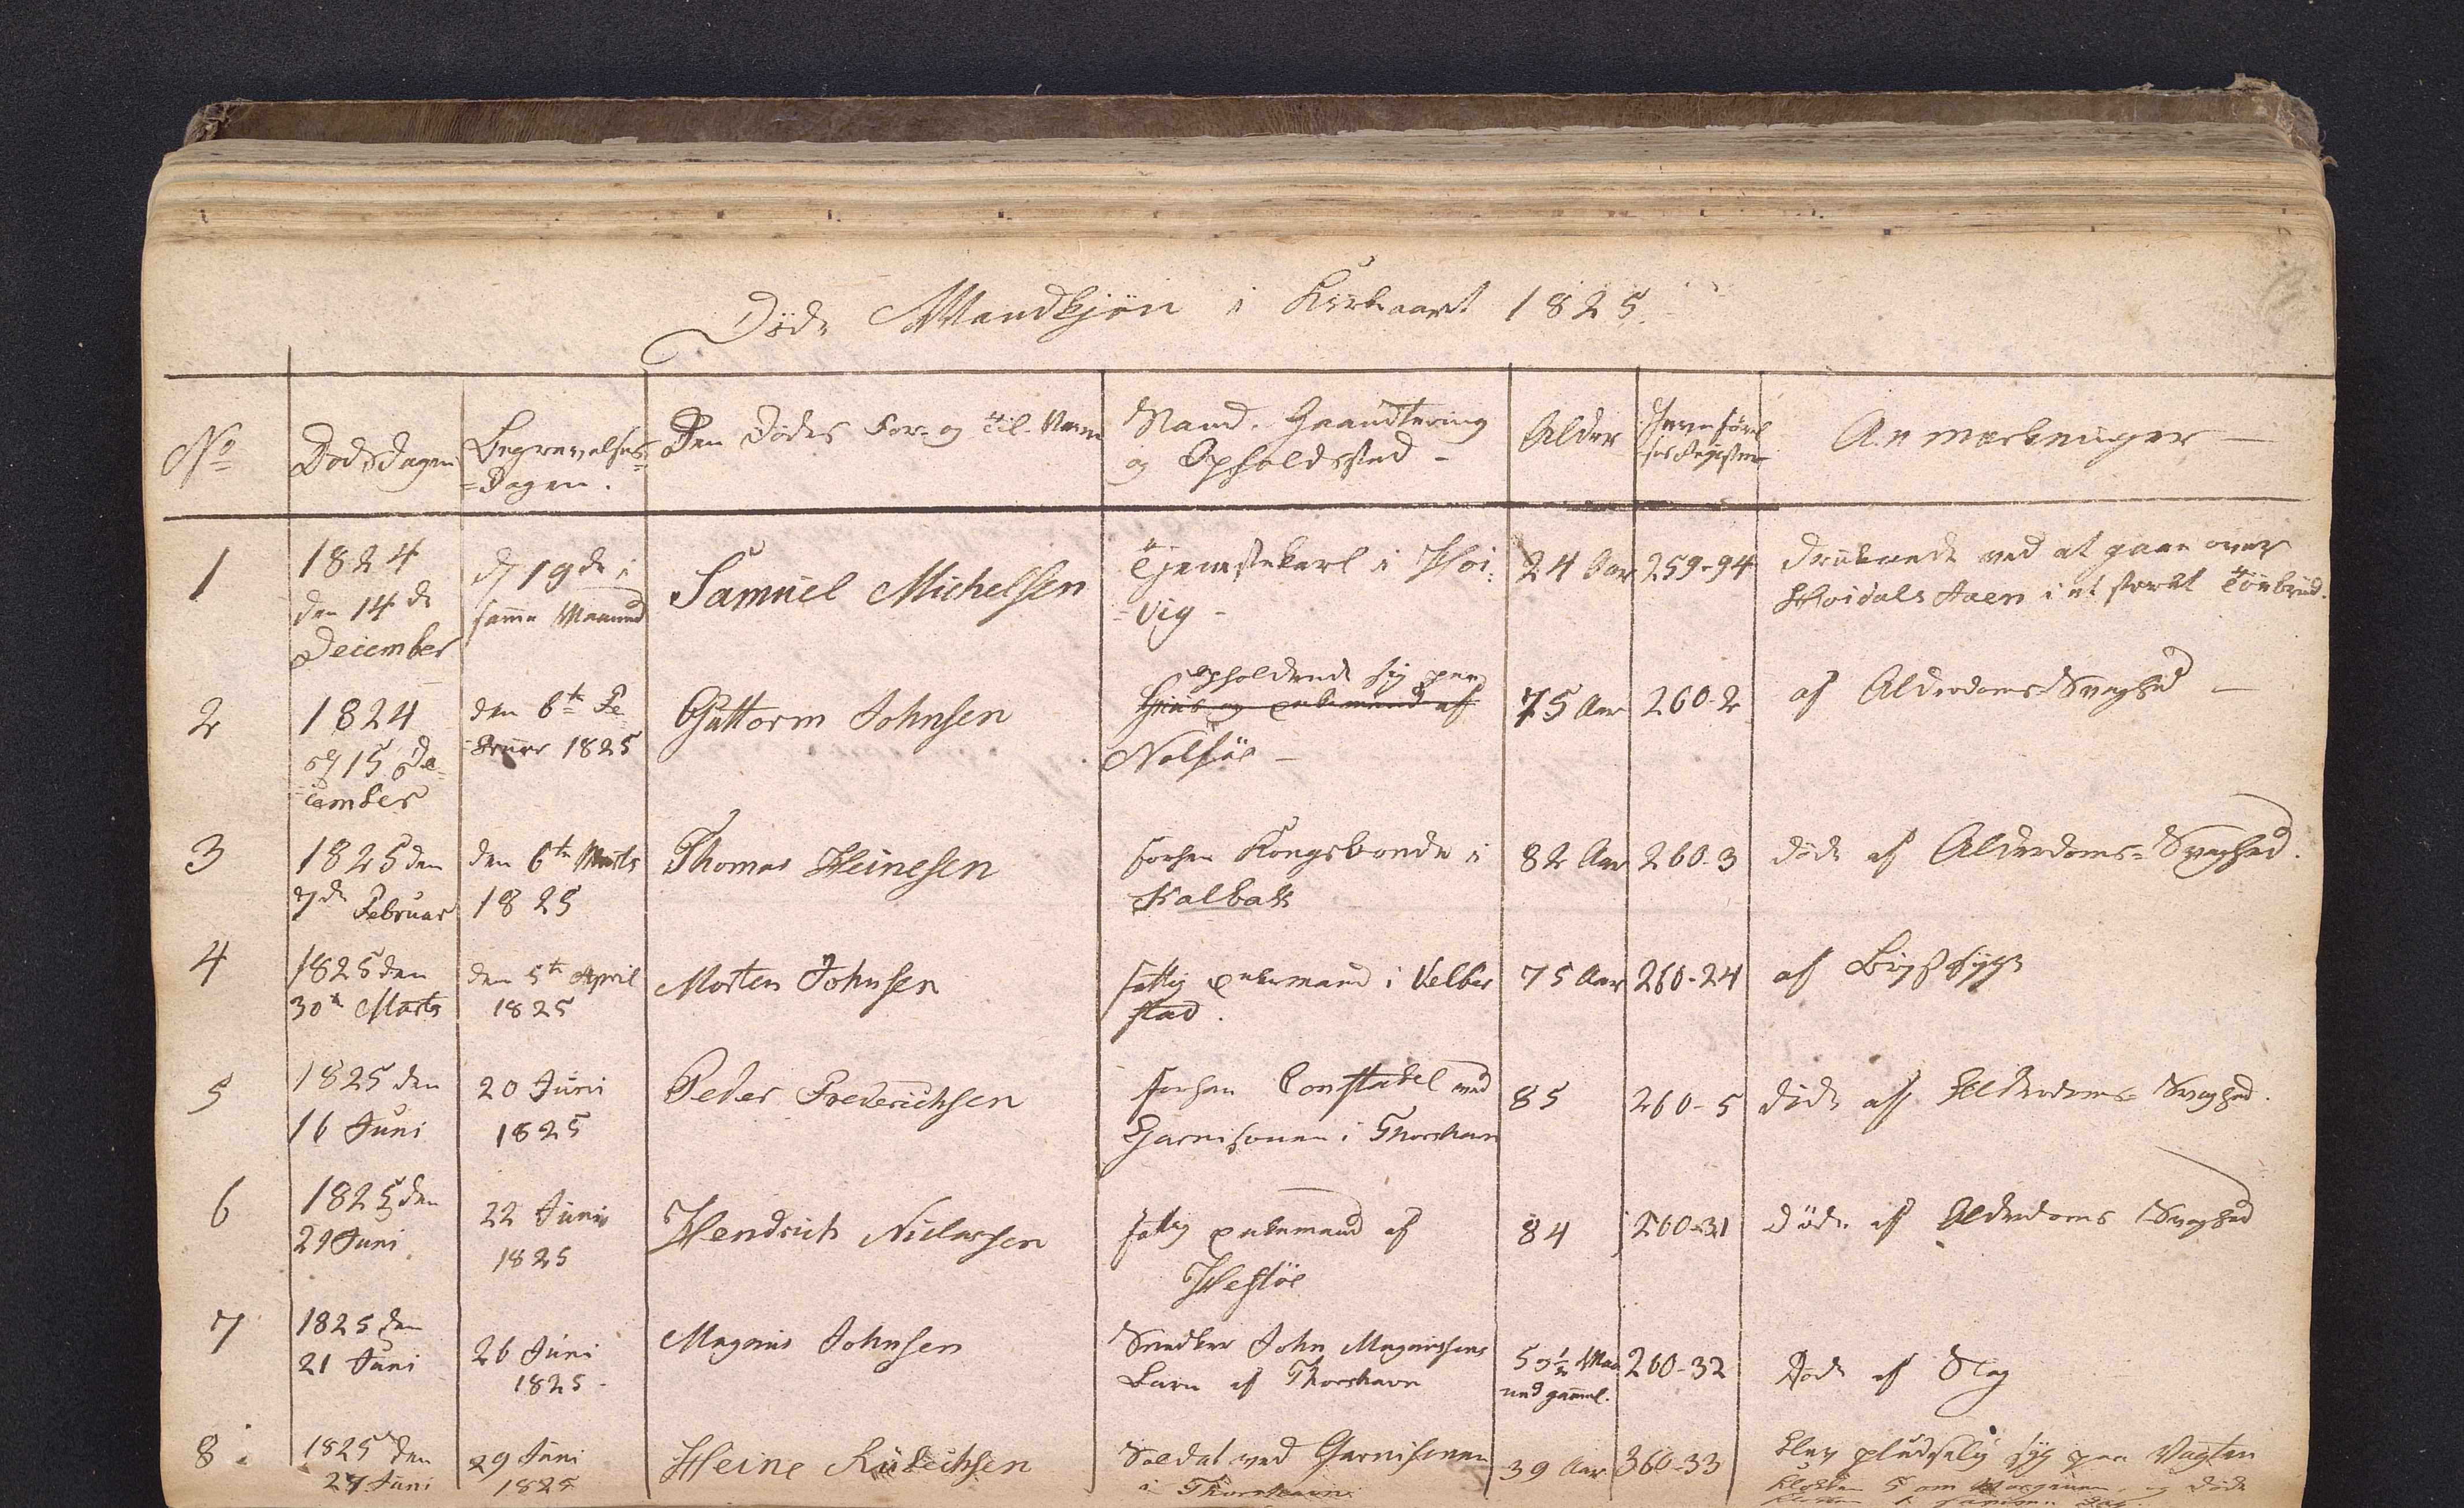 Døde Mandkjøn i Kirkeaaret 1825.
No Dødsdagen Begravelses= =Dagen. Den Dødes For- og Til-Navn Stand, Haandtering og Opholdssted - Alder Jevnførel ses Register Anmerkninger —
1 1824 den 14de December d 19de i samme Maaned Samuel Michelsen Tjenestekarl i Høi= =vig - 24 Aar 259-94 Druknede ved at gaae over
Høidals Aaen i et stærkt Tøebrud.
2 1824 d 15 De= =cember den 6te Fe =bruar 1825 Guttorm Johnsen opholdende sig paa
Nolsøe - 75 Aar 260-2 af Alderdoms-Svaghed —
3 1825 den 7de Februar den 6te Marts 1825 Thomas Heinesen forhen Kongsbonde i
Kalbak 82 Aar 260-3 døde af Alderdoms=Svaghed.
4 1825 den 30te Marts den 5te April 1825 Morten Johnsen fattig enkemand i Velber
stad. 75 Aar 260-24 af Brystsyge
5 1825 den 16 Juni 20 Juni 1825 Peder Frederichsen forhen Constabel ved
Garnisonen i Thorshavn 85 260-5 døde af Alderdoms-Svaghed.
6 1825 den 29 Juni 22 Juni 1825 Hendrich Niclassen fattig enkemand af
Hestøe 84 260-31 Døde af Alderdoms Svaghed
7 1825 den 21 Juni 26 Juni 1825- Magnus Johnsen Snedker John Magnussens
Barn af Thorshavn 5 1/2 Maa ned gammel. 260-32 Døde af Slag
8. 1825 den 27 Juni 29 Juni 1825 Heine Soldat ved Garnisonen
i Thorshavn 39 Aar 360-33 blev pludselig syg paa Vagten
Klokken 5 om Morgenen, og døde